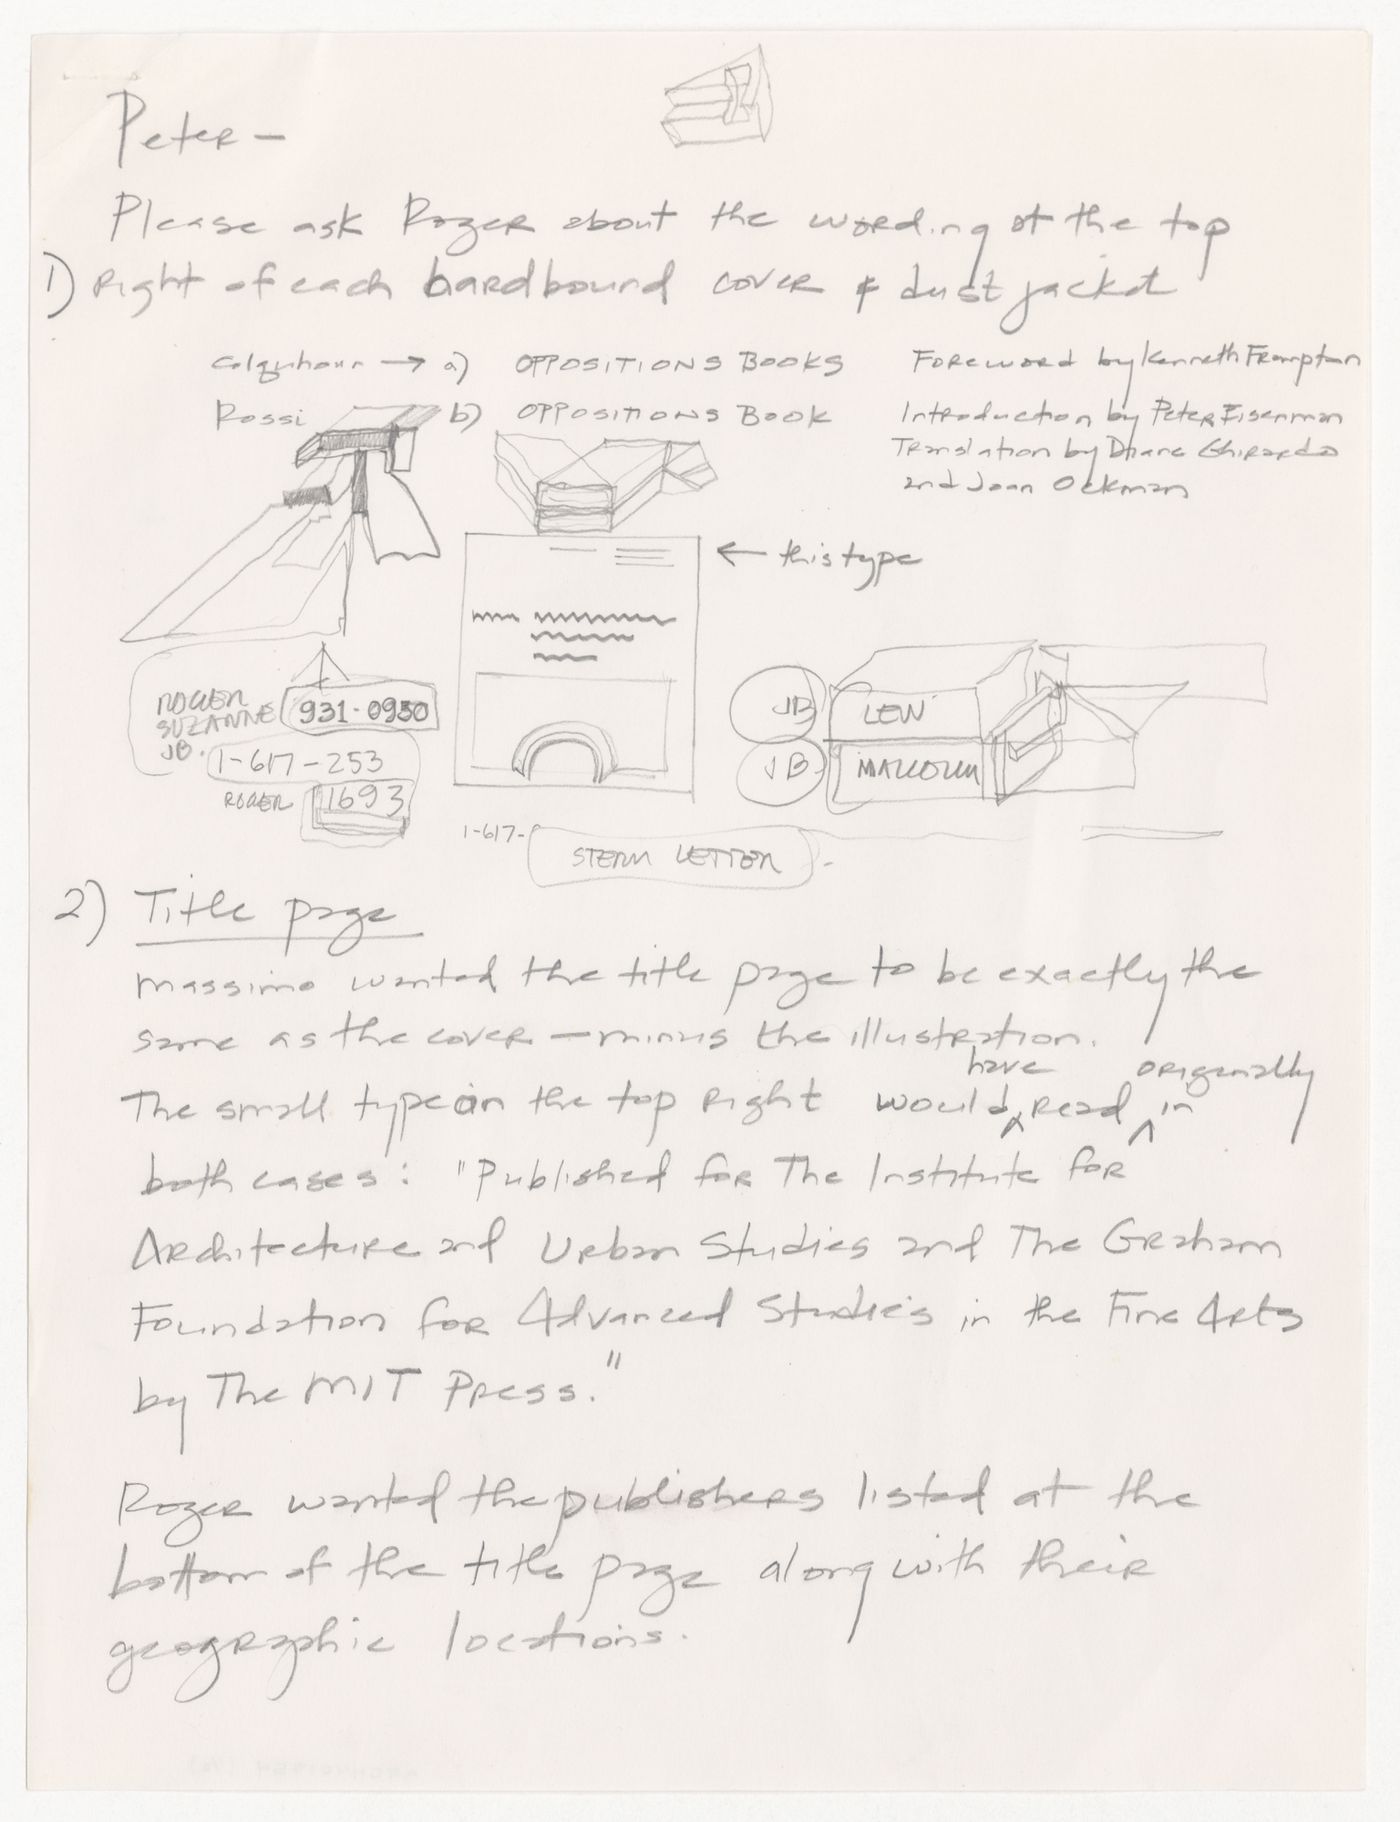 Peter —
Please ask Roger about the wording at the top
1) right of each hardbound cover & dust jacket
Colquhoun → a) OPPOSITIONS BOOKS Foreword by Kenneth Frampton
Rossi b) OPPOSITIONS BOOK Introduction by Peter Eisenman
Translation by Diane Ghirardo
and Joan Ockman
← this type
ROGER
SUZANNE 931-0950
JB.
1-617-253
ROGER 1693
JB LEW
JB MALCOLM
1-617-
STERN LETTER
2) Title page
Massimo wanted the title page to be exactly the
same as the cover — minus the illustration.
have originally
The small type on the top right would ^ read ^ in
both cases: "Published for The Institute for
Architecture and Urban Studies and The Graham
Foundation for Advanced Studies in the Fine Arts
by The MIT Press."
Roger wanted the publishers listed at the
bottom of the title page along with their
geographic locations.